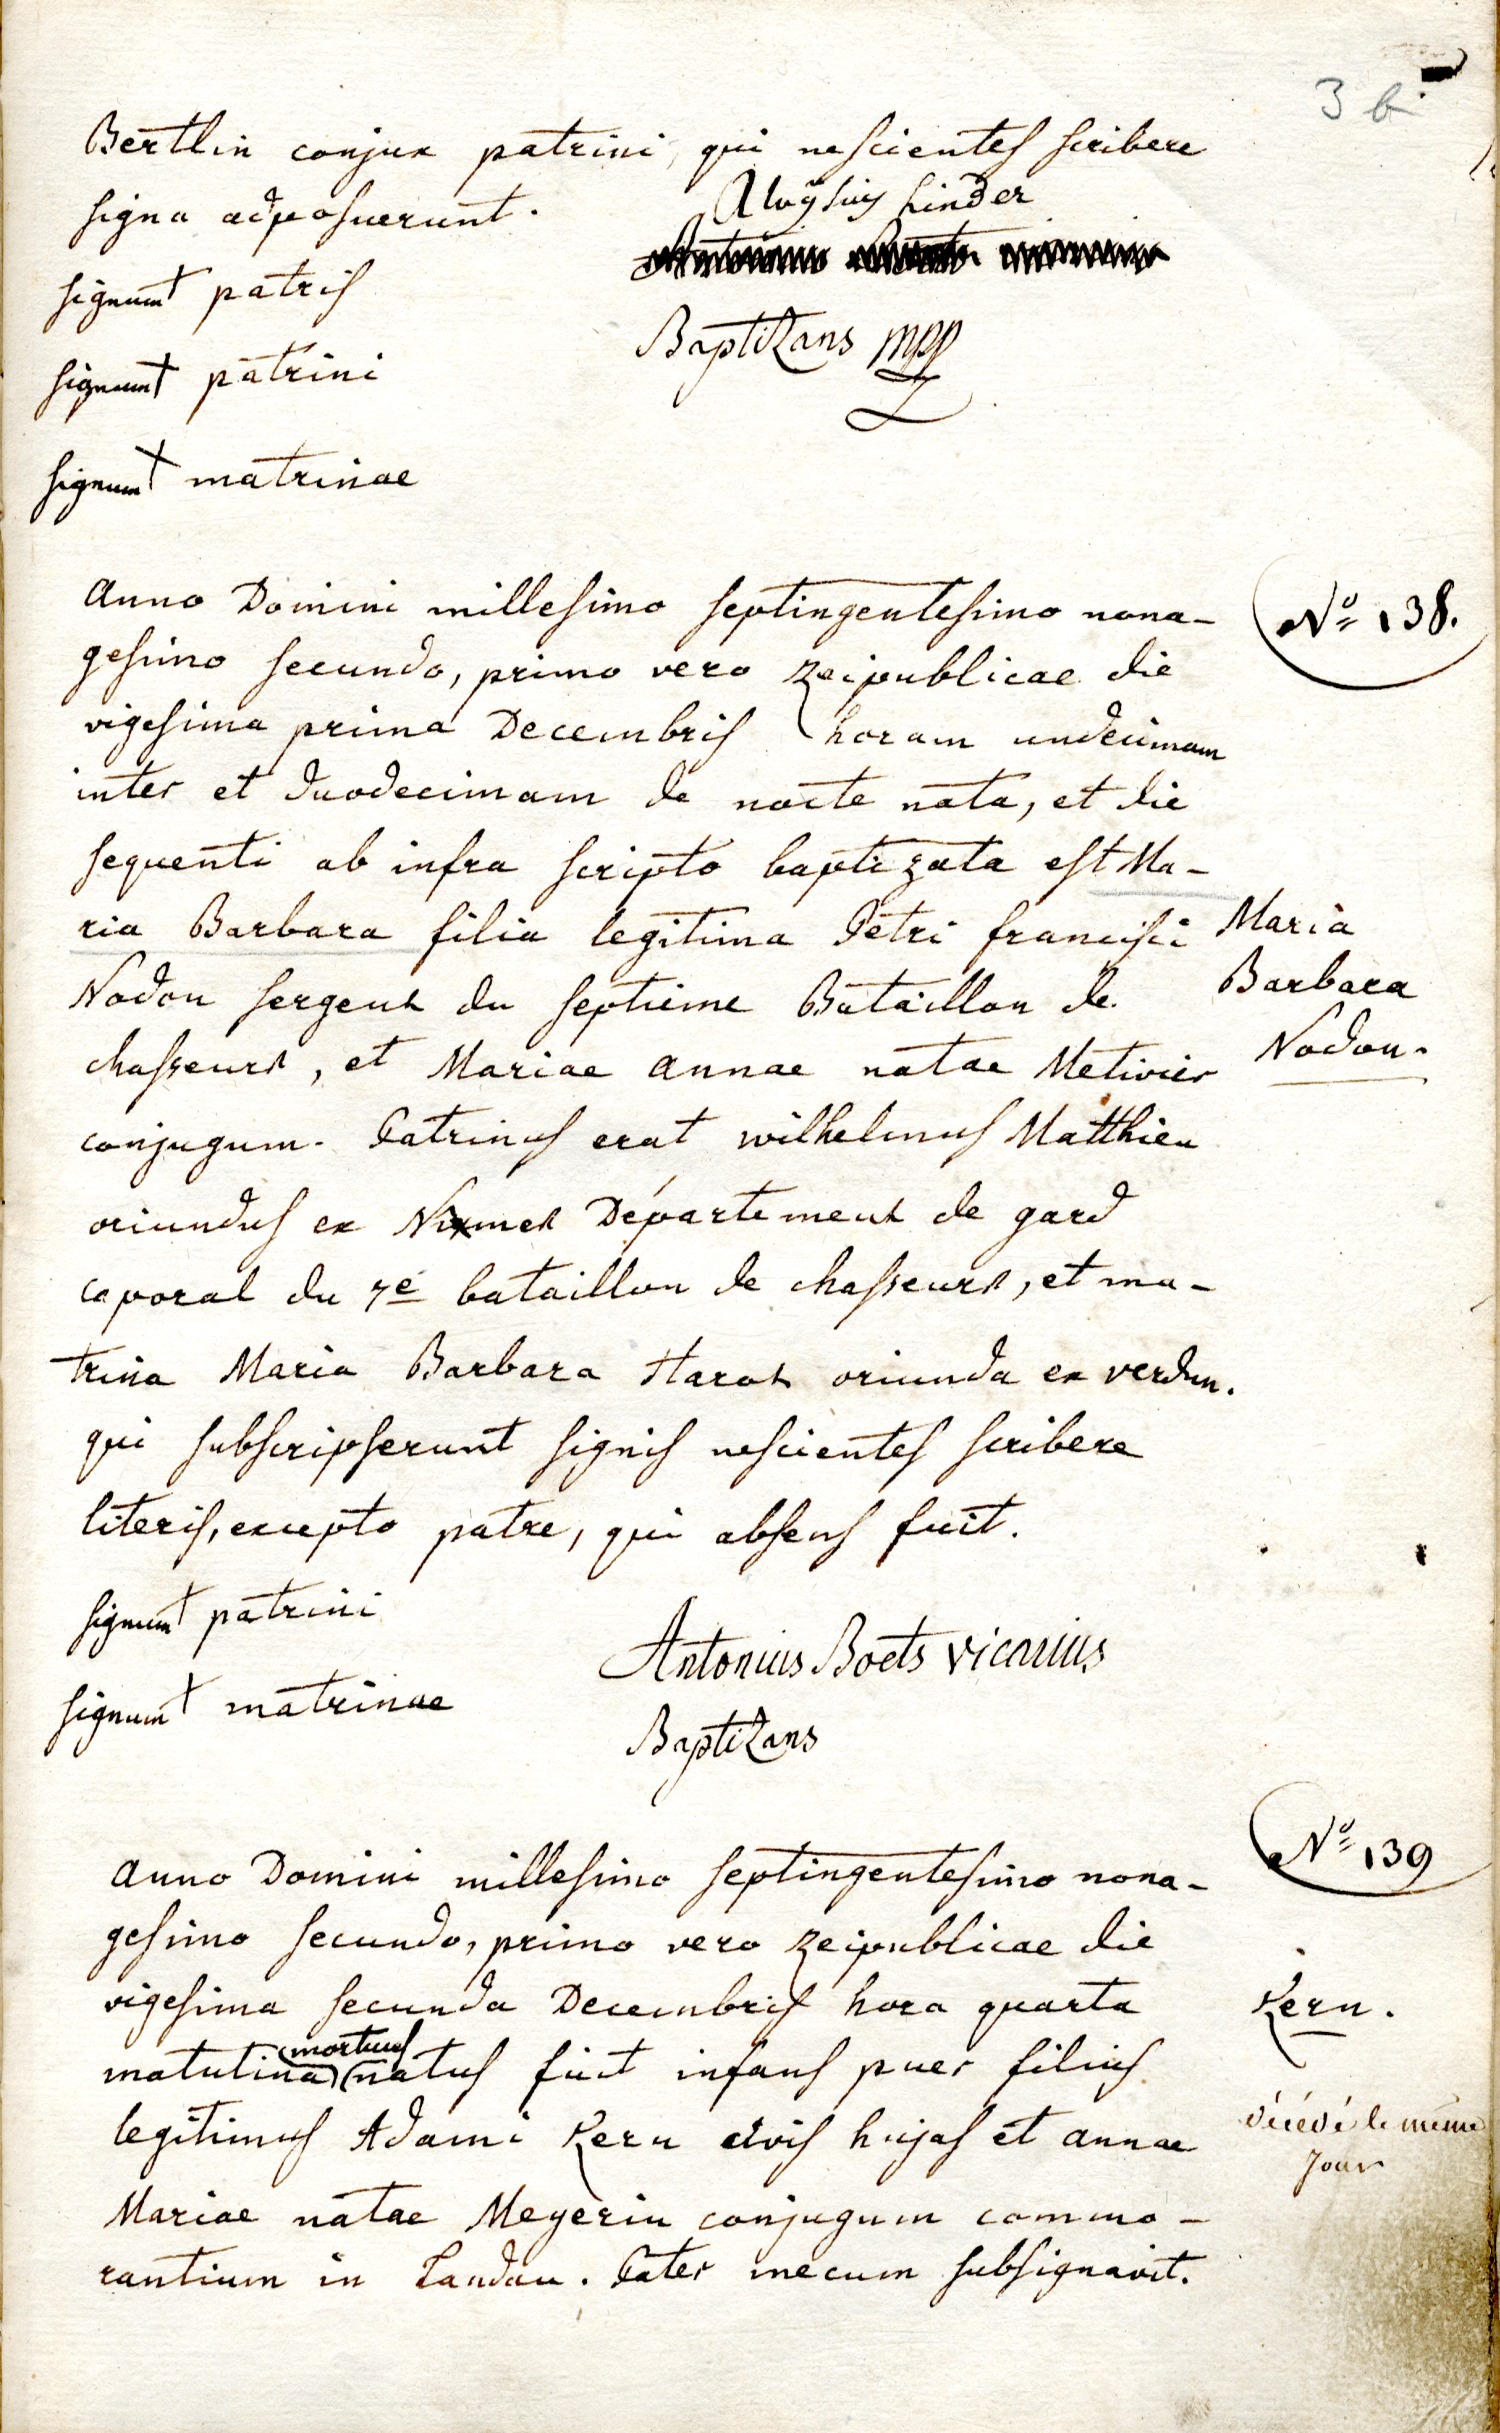 3 b
Bertlin conjux patrini, qui nescientes scribere
signa adposuerunt.
Aloysius Linder
signum + patris
Baptizans mpp
signum + patrini
signum + matrinae
Anno Domini millesimo septingentesimo nona-
gesimo secundo, primo vero reipublicae die
vigesima prima Decembris horam undecimam
inter et duodecimam de nocte nata, et die
sequenti ab infra scripto baptizata est Ma-
ria Barbara filia legitima Petri francisci
Nodon sergent du septieme Bataillon de
chasseurs, et Mariae Annae natae Metivier
conjugum. Patrinus erat wilhelmus Matthieu
oriundus ex Nismes Département de gard
caporal du 7e bataillon de chasseurs, et ma-
trina Maria Barbara oriunda ex verdun.
qui subscripserunt signis nescientes scribere
literis, excepto patre, qui absens fuit.
Nº 138.
Maria
Barbara
Nodon.
signum + patrini
signum + matrinae
Antonius Boets vicarius
Baptizans
Anno Domini millesimo septingentesimo nona-
gesimo secundo, primo vero reipublicae die
vigesima secunda Decembris hora quarta
matutina (mortuus) natus fuit infans puer filius
legitimus Adami Kern civis hujas et annae
Mariae natae Meyerin conjugum commo-
rantium in Landau. Pater mecum subsignavit.
Nº 139
Kern.
décédé le même
jour